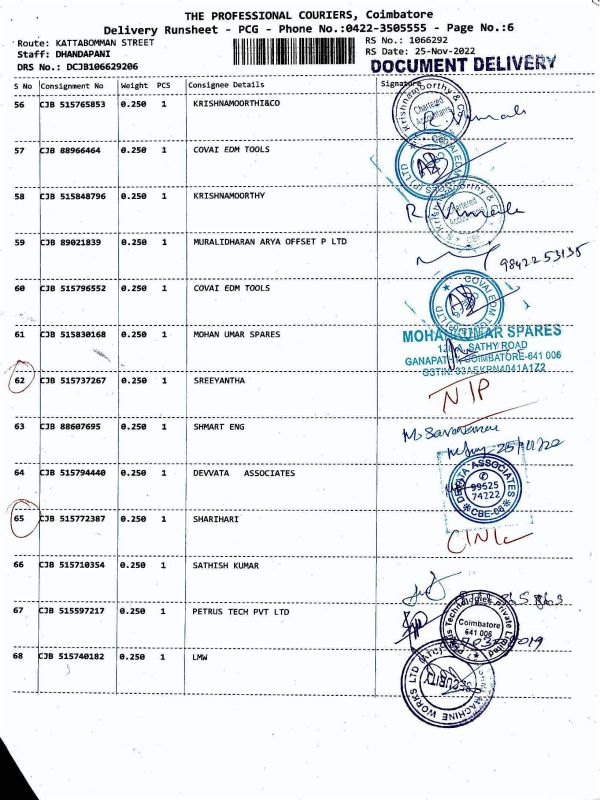 THE PROFESSIONAL COURIERS, Coimbatore
Delivery Runsheet - PCG - Phone No.:0422-3505555 - Page No.:6
Route: KATTABOMMAN STREET
RS No.: 1066292
Staff: DHANDAPANI
RS Date: 25-Nov-2022
DRS No.: DCJB106629206
DOCUMENT DELIVERY
S No Consignment No Weight PCS Consignee Details Signature
56 CJB 515765853 0.250 1 KRISHNAMOORTHI&CO
Krishnamoorthy & Co
Chartered Accountants
57 CJB 88966464 0.250 1 COVAI EDM TOOLS
COVAI EDM
58 CJB 515848796 0.250 1 KRISHNAMOORTHY
Chartered
59 CJB 89021839 0.250 1 MURALIDHARAN ARYA OFFSET P LTD
9842253135
60 CJB 515796552 0.250 1 COVAI EDM TOOLS
COVAI EDM
61 CJB 515830168 0.250 1 MOHAN UMAR SPARES
MOHAN KUMAR SPARES
SATHY ROAD
GANAPATHY COIMBATORE-641 006
GSTIN: 33AEKPN4041A1Z2
62 CJB 515737267 0.250 1 SREEYANTHA
NIP
63 CJB 88607695 0.250 1 SHMART ENG
M. Saravanan
25/11/22
64 CJB 515794440 0.250 1 DEVVATA ASSOCIATES
DEVVATA ASSOCIATES
99625
74222
CBE-06
65 CJB 515772387 0.250 1 SHARIHARI
66 CJB 515710354 0.250 1 SATHISH KUMAR
67 CJB 515597217 0.250 1 PETRUS TECH PVT LTD
Technologies Private Limited
Coimbatore
641 006
68 CJB 515740182 0.250 1 LMW
MACHINE WORKS LTD
SECURITY